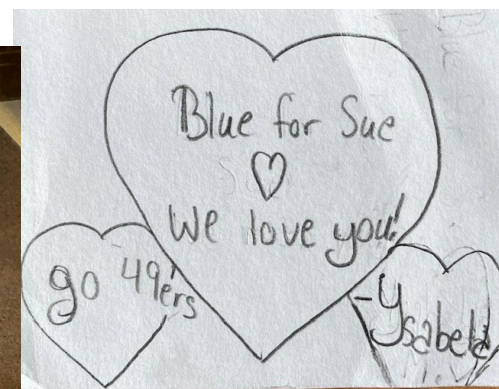 Blue for Sue
We love you!
go 49ers
-Ysabela